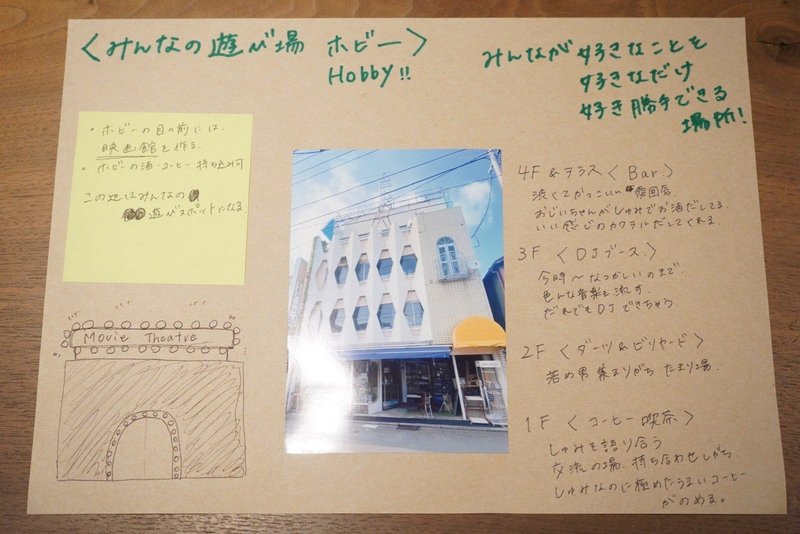 〈みんなの遊び場 ホビー〉
Hobby!!
みんなが好きなことを
好きなだけ
好き勝手できる
場所!
・ホビーの目の前には、
映画館を作る.
・ホビーの酒・コーヒー 持ち込み可
この辺はみんなの
遊びスポットになる
Movie Theatre
4F & テラス〈 Bar 〉
渋くてかっこいい 雰囲気
おじいちゃんがしゅみでお酒だしてる
いい感じのカクテルだしてくれる.
3F 〈 DJブース 〉
今時〜なつかしいのまで.
色んな音楽を流す.
だれでもDJできちゃう.
2F 〈 ダーツ & ビリヤード 〉
若め男集まりがち たまり場.
1F 〈 コーヒー喫茶 〉
しゅみを語り合う
交流の場. 待ち合わせしがち
しゅみなのに極めたうまいコーヒー
がのめる。